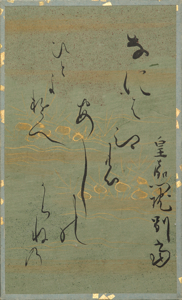 皇嘉門院別當
なには江の
あしの
かりねの
ひとよ
ゆへ